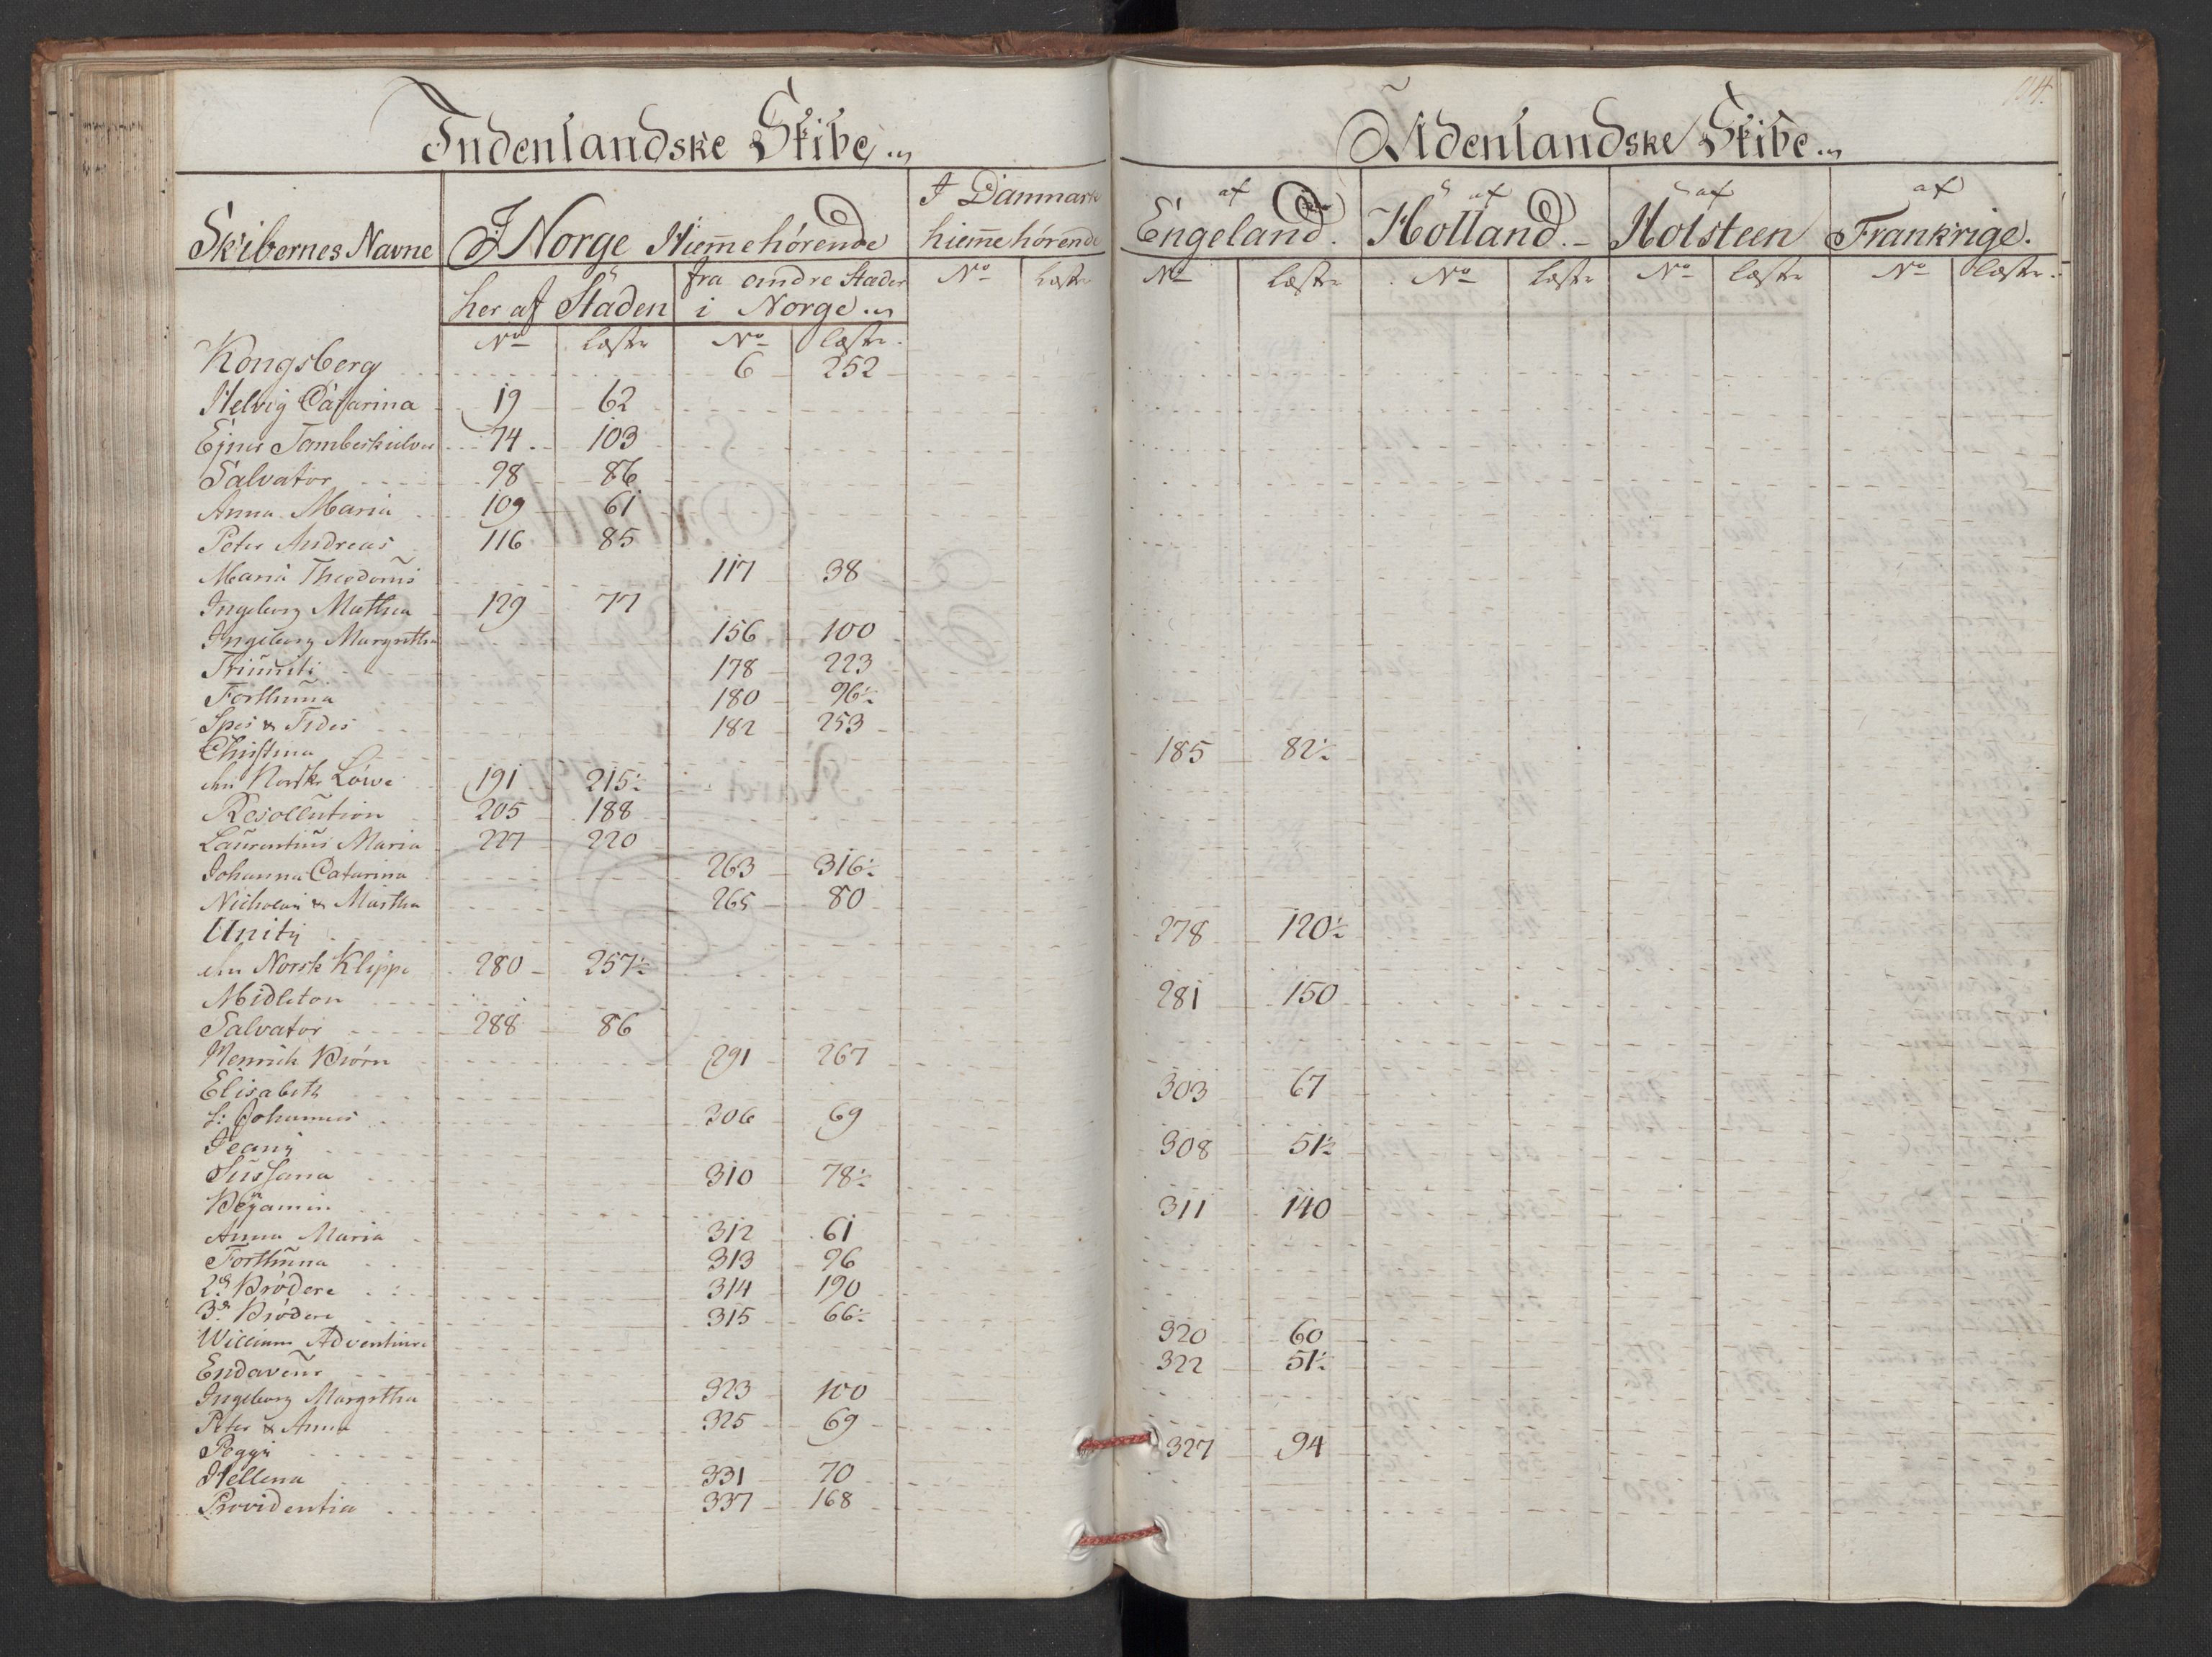 Indenlandske Skibe
Udenlandske Skibe
114.
Skibernes Navne | I Norge Hiem̄ehörende | I Danmark hiem̄ehörende | af Engeland. | af Holland. | af Holsteen | af Frankrige.
her af Staden | fra andre Stæder i Norge
No | Læster | No | Læster | No | Læster | No | Læster | No | Læster | No | Læster | No | Læster
Kongsberg 6 252
Helvig Catarina 19 62
Ejner Tambeskielver 74 103
Salvator 98 86
Anna Maria 109 61
Peter Andreas 116 85
Maria Theodorus 117 38
Ingeborg Mathea 129 77
Ingeborg Margretha 156 100
Trinniti 178 223
Forthuna 180 96½
Spes & Fides 182 253
Christina 185 82½
den Norske Löwe 191 215½
Resollution 205 188
Laurentius Maria 227 220
Johanna Catarina 263 316½
Nicholai & Martha 265 80
Unity 278 120½
den Norsk Klippe 280 257½
Midleton 281 150
Salvator 288 86
Henrich Biörn 291 267
Elisabeth 303 67
St: Johannes 306 69
Jeany 308 51½
Sussana 310 78½
Bejamin 311 140
Anna Maria 312 61
Forthuna 313 96
2de Brödere 314 190
3de Brödere 315 66½
William Adventure 320 60
Endaveur 322 51½
Ingeborg Margretha 323 100
Peter & Anna 325 69
Peggy 327 94
Hellena 331 70
Providentia 337 168